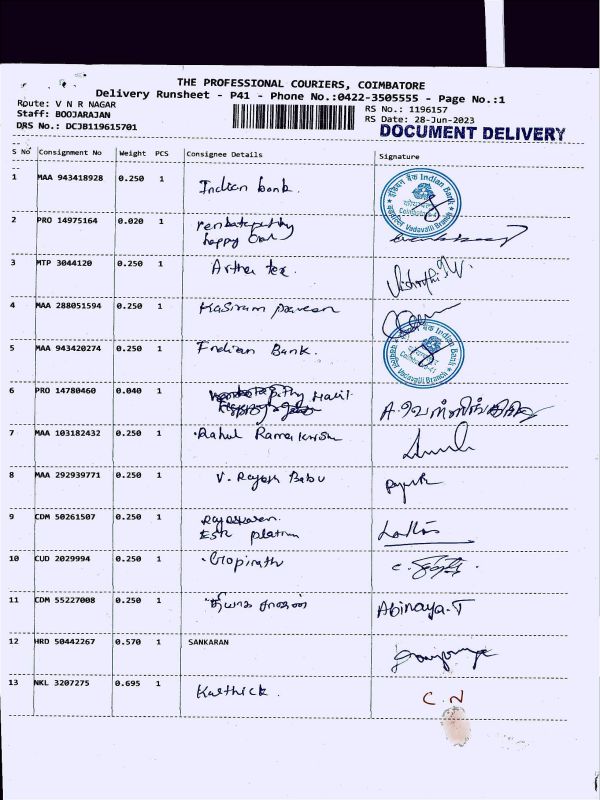 THE PROFESSIONAL COURIERS, COIMBATORE
Delivery Runsheet - P41 - Phone No.:0422-3505555 - Page No.:1
Route: V N R NAGAR
RS No.: 1196157
Staff: BOOJARAJAN
RS Date: 28-Jun-2023
DRS No.: DCJB119615701
DOCUMENT DELIVERY
S No Consignment No Weight PCS Consignee Details Signature
1 MAA 943418928 0.250 1 Indian bank.
इंडियन बैंक Indian Bank Vadavalli Branch
2 PRO 14975164 0.020 1
happy
3 MTP 3044120 0.250 1 Artha tex.
4 MAA 288051594 0.250 1 Kasiram
5 MAA 943420274 0.250 1 Indian Bank.
इंडियन बैंक Indian Bank Vadavalli Branch
6 PRO 14780460 0.040 1
7 MAA 103182432 0.250 1 Rahul
8 MAA 292939771 0.250 1 V. Rajesh Babu
9 CDM 50261507 0.250 1
ESR platinum
10 CUD 2029994 0.250 1 Gopinath
11 CDM 55227008 0.250 1 Abinaya.T
12 HRD 50442267 0.570 1 SANKARAN
13 NKL 3207275 0.695 1 Karthick. C.N